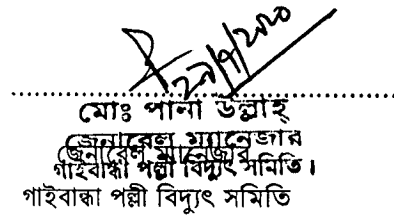 ২৭/৭/২০২০
মোঃ পানা উল্লাহ্
জেনারেল ম্যানেজার
জেনারেল ম্যানেজার
গাইবান্ধা পল্লী বিদ্যুৎ সমিতি।
গাইবান্ধা পল্লী বিদ্যুৎ সমিতি